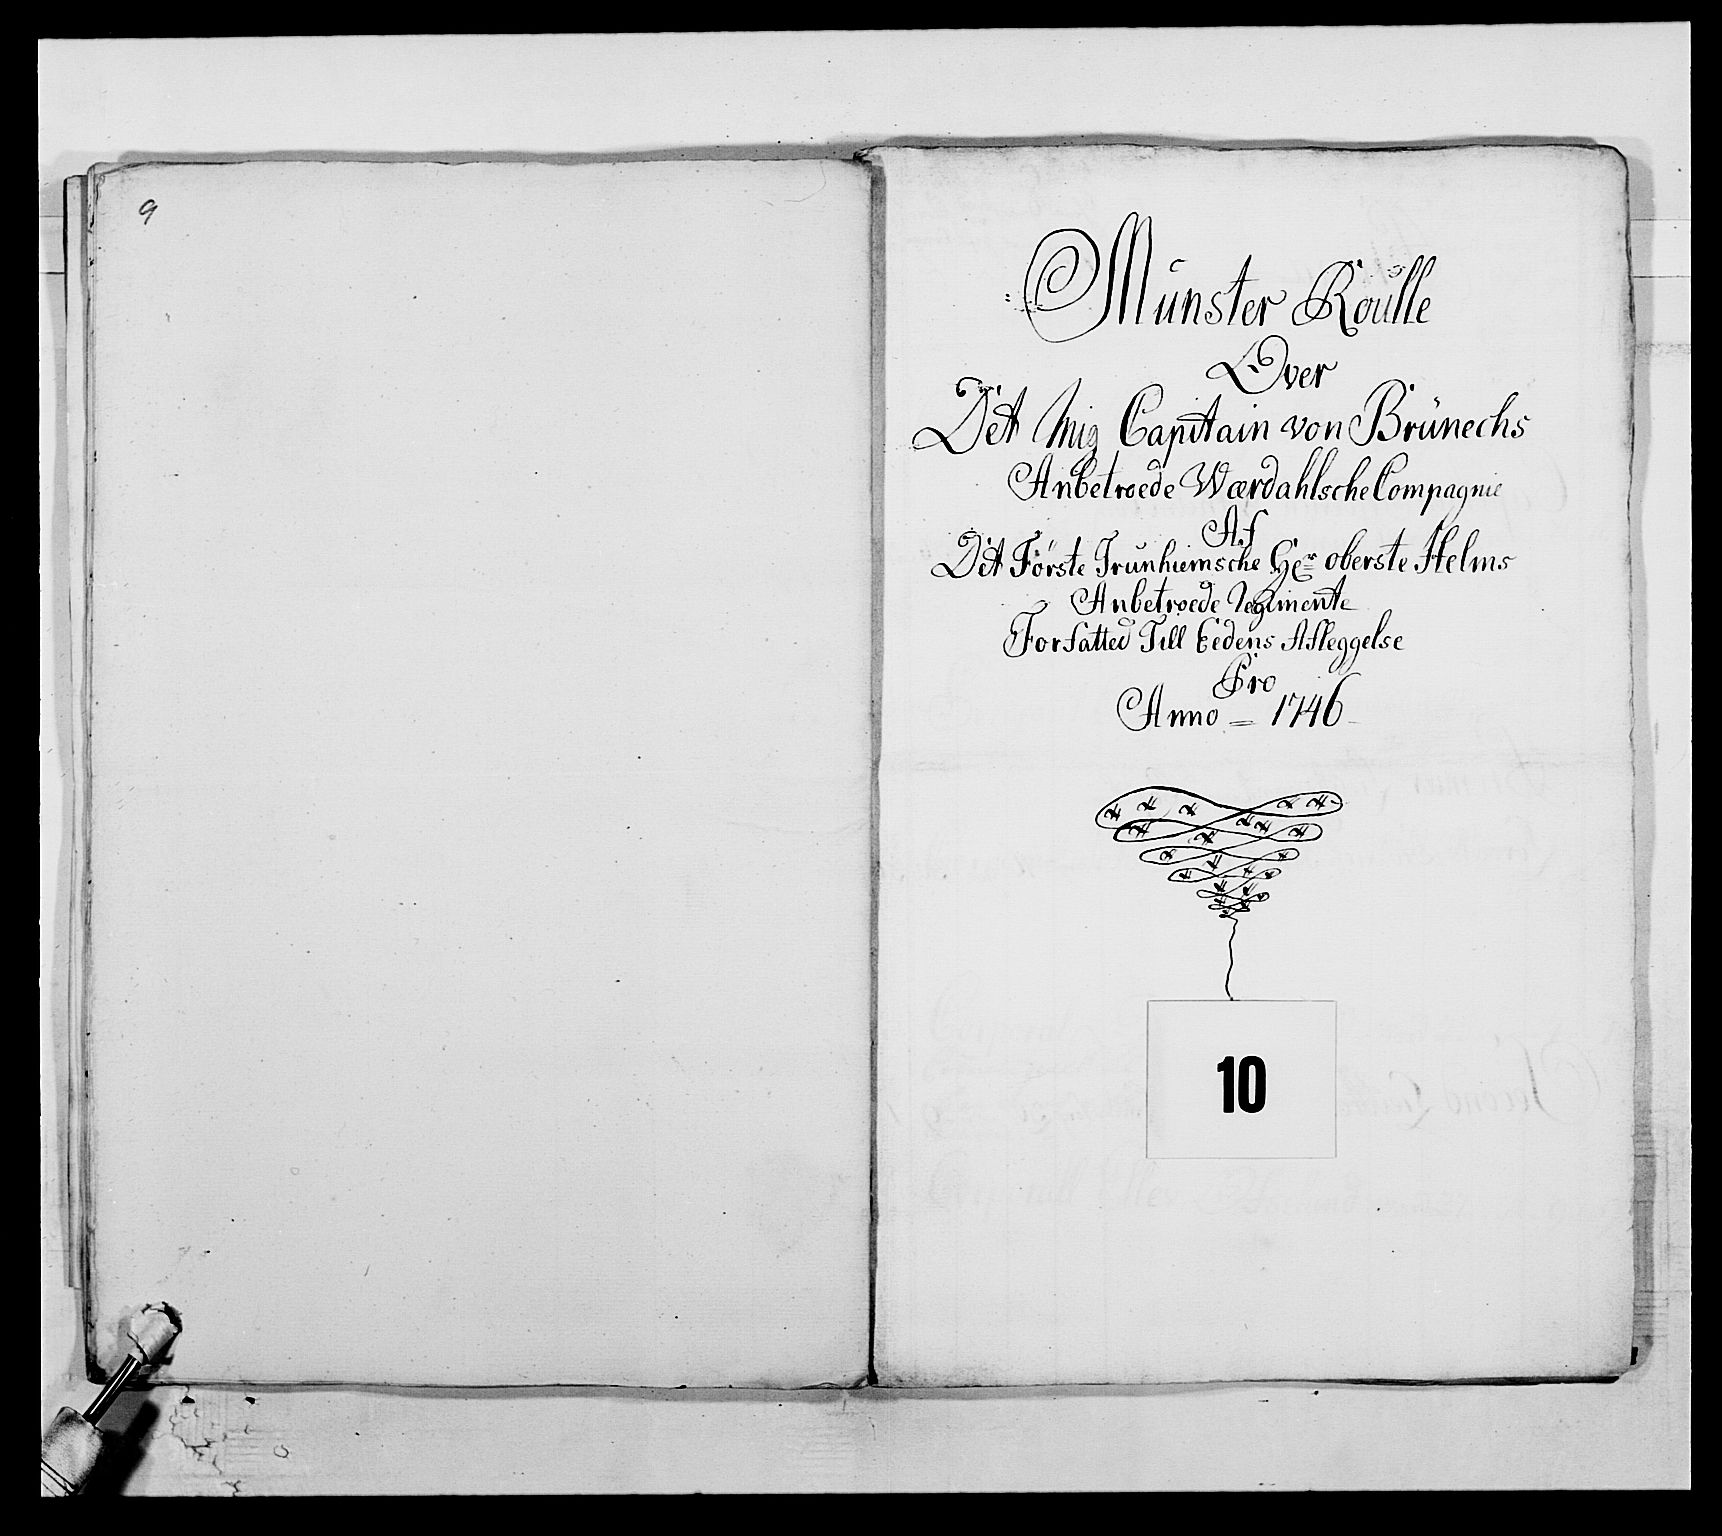 9
Münster Roülle
Over
Det Mig Capitain von Brünechs
Anbetroede Wærdahlsche Compagnie
Af
Det Förste Trunhiemsche Hr oberste Helms
Anbetroede Regimente
Forfatted Till Eedens Afleggelse
Pro
Anno = 1746
10